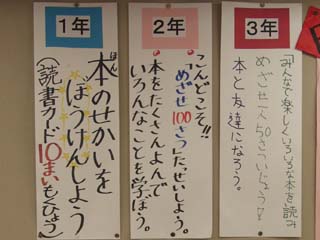 1年
本のせかいを
ほん
ぼうけんしよう
(読書カード10まいもくひょう)
2年
こんどこそ!!
「めざせ100さつ」たっせいしよう。
・本をたくさんよんで
いろんなことを学ぼう。
3年
「みんなで楽しくいろいろな本を」読み
めざせ一人50さついじょう
本と友達になろう。